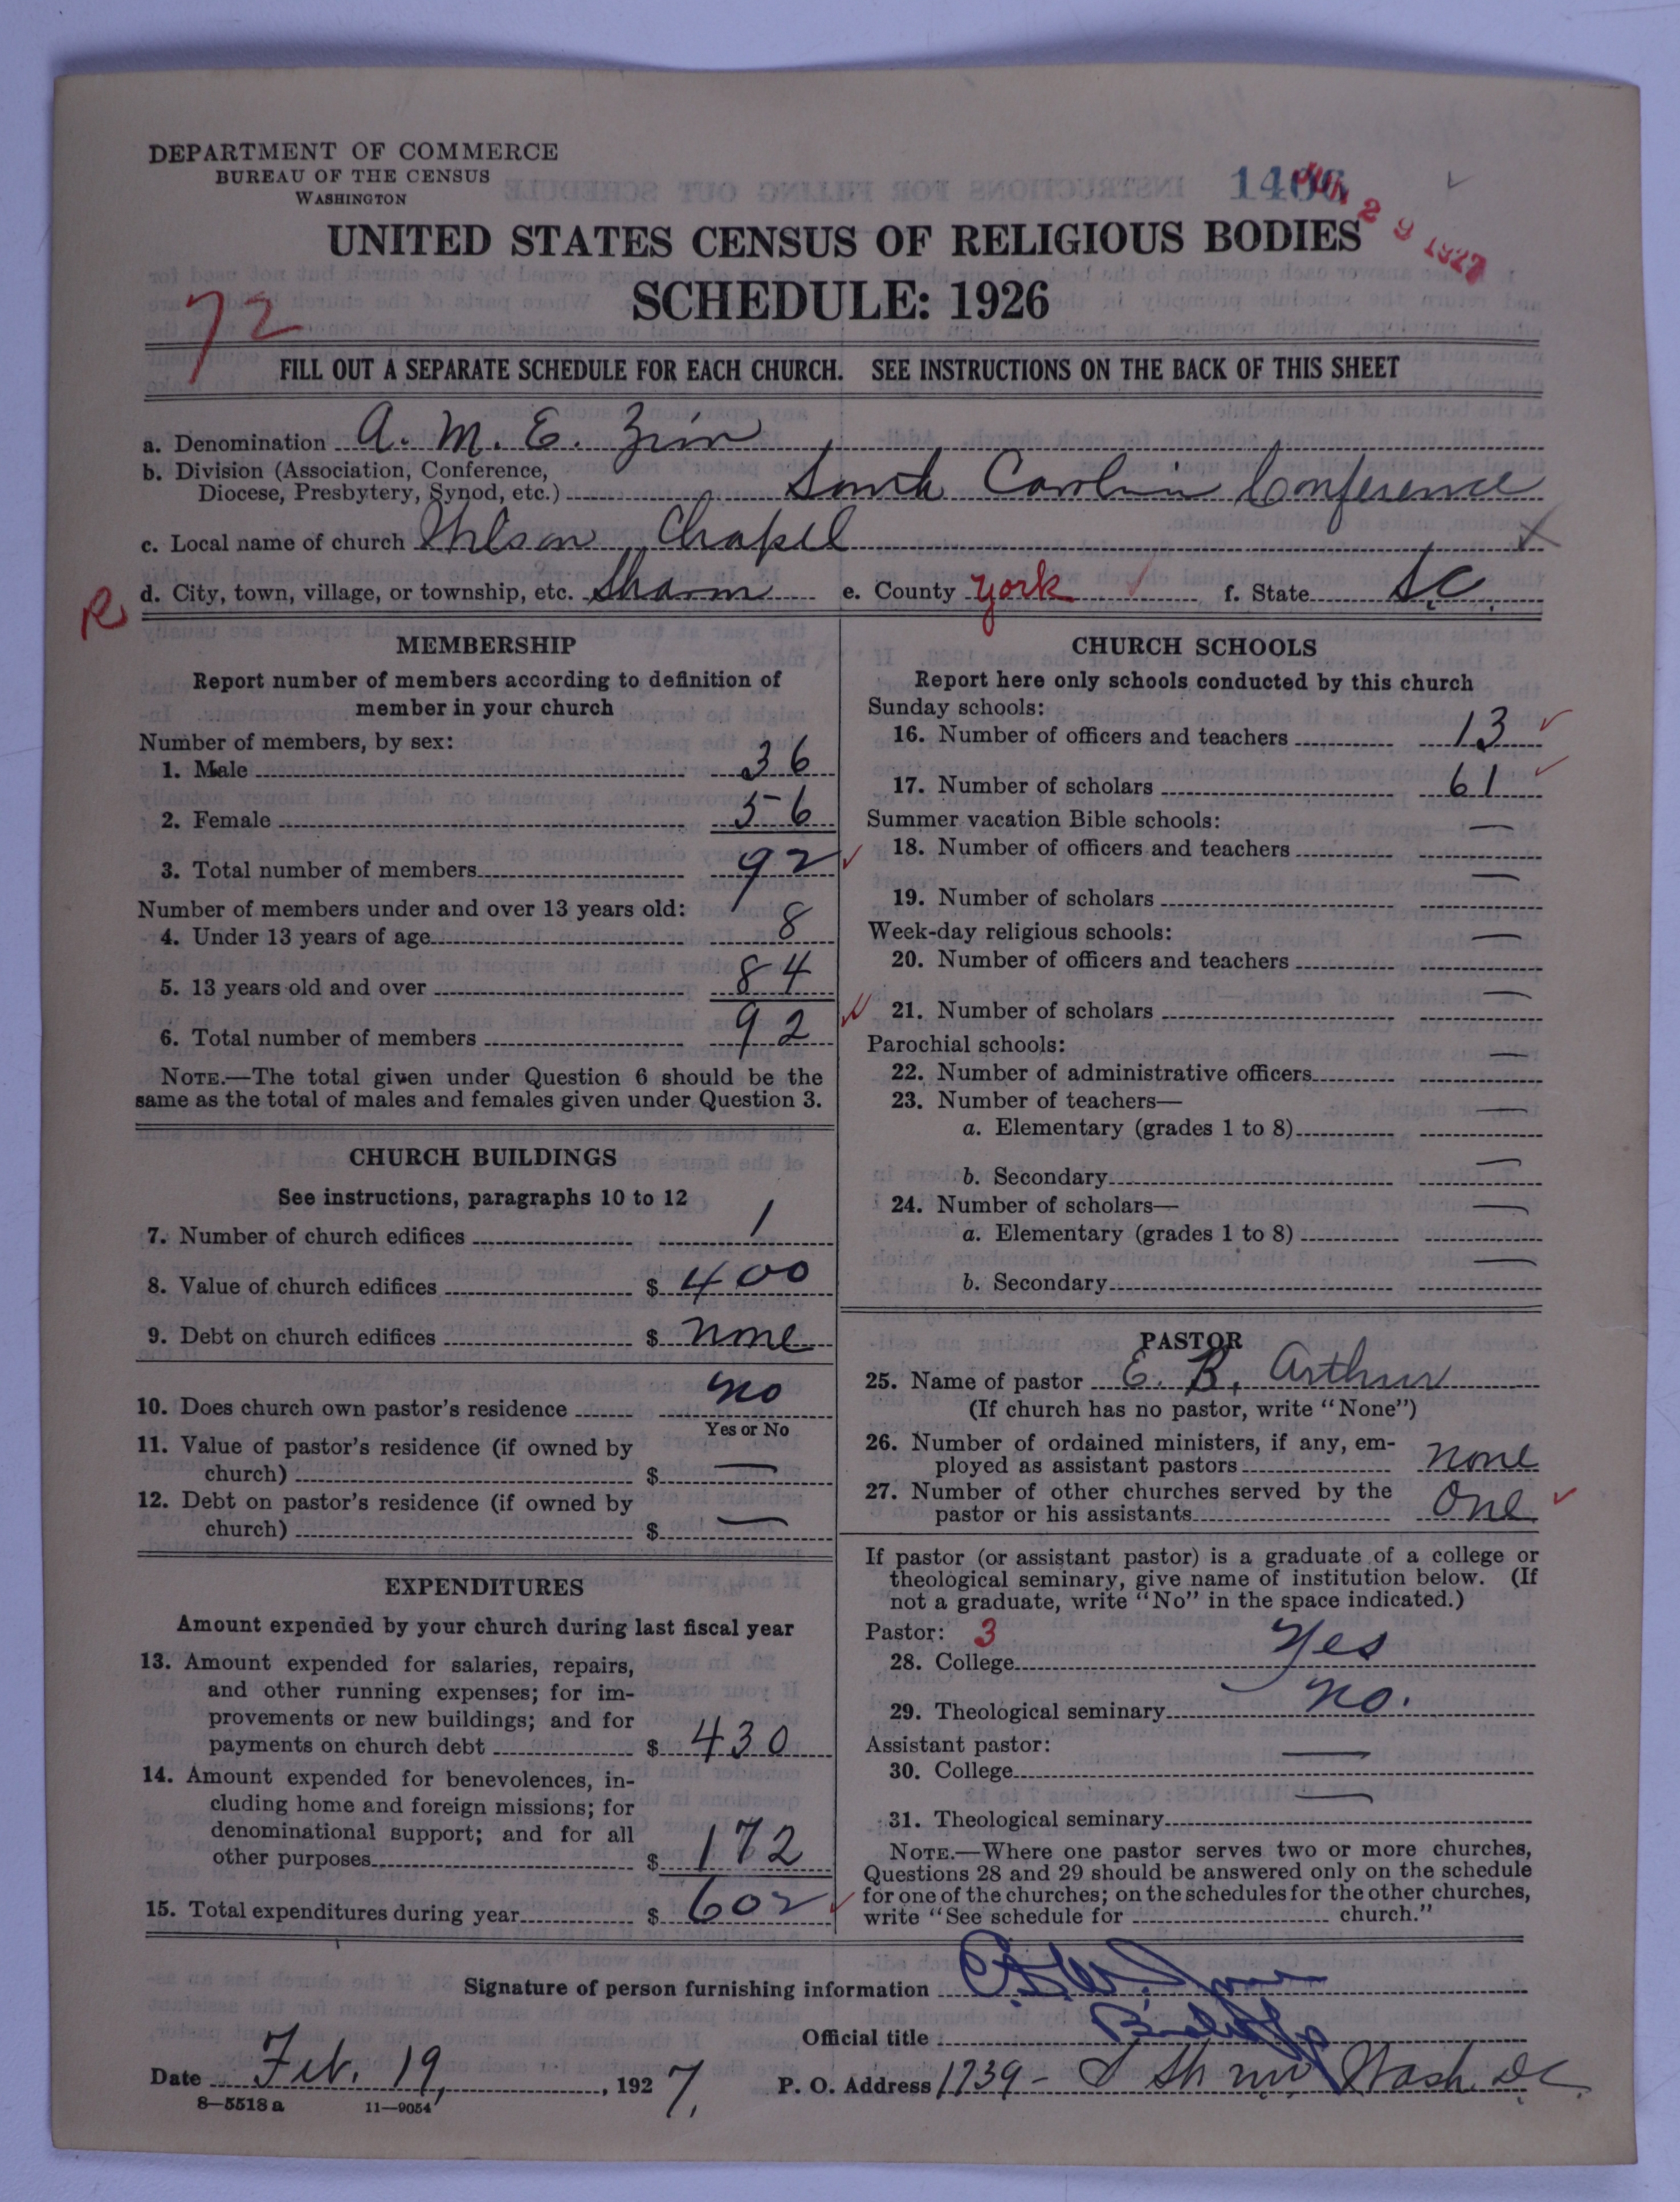 DEPARTMENT OF COMMERCE
BUREAU OF THE CENSUS
WASHINGTON
1406
JUN 29 1927
UNITED STATES CENSUS OF RELIGIOUS BODIES
SCHEDULE: 1926
72
FILL OUT A SEPARATE SCHEDULE FOR EACH CHURCH. SEE INSTRUCTIONS ON THE BACK OF THIS SHEET
a. Denomination A. M. E. Zion
b. Division (Association, Conference,
Diocese, Presbytery, Synod, etc.) South Carolina Conference
c. Local name of church Wilson Chapel
R d. City, town, village, or township, etc. Sharon e. County York f. State S.C.
MEMBERSHIP
Report number of members according to definition of
member in your church
Number of members, by sex:
1. Male 36
2. Female 56
3. Total number of members 92
Number of members under and over 13 years old:
4. Under 13 years of age 8
5. 13 years old and over 84
6. Total number of members 92
NOTE.—The total given under Question 6 should be the
same as the total of males and females given under Question 3.
CHURCH BUILDINGS
See instructions, paragraphs 10 to 12
7. Number of church edifices 1
8. Value of church edifices $ 400
9. Debt on church edifices $ none
10. Does church own pastor's residence no
Yes or No
11. Value of pastor's residence (if owned by
church) $ —
12. Debt on pastor's residence (if owned by
church) $ —
EXPENDITURES
Amount expended by your church during last fiscal year
13. Amount expended for salaries, repairs,
and other running expenses; for im-
provements or new buildings; and for
payments on church debt $ 430
14. Amount expended for benevolences, in-
cluding home and foreign missions; for
denominational support; and for all
other purposes $ 172
15. Total expenditures during year $ 602
CHURCH SCHOOLS
Report here only schools conducted by this church
Sunday schools:
16. Number of officers and teachers 13
17. Number of scholars 61
Summer vacation Bible schools:
18. Number of officers and teachers —
19. Number of scholars —
Week-day religious schools:
20. Number of officers and teachers —
21. Number of scholars —
Parochial schools:
22. Number of administrative officers —
23. Number of teachers—
a. Elementary (grades 1 to 8) —
b. Secondary —
24. Number of scholars—
a. Elementary (grades 1 to 8) —
b. Secondary —
PASTOR
25. Name of pastor E. B. Arthur
(If church has no pastor, write "None")
26. Number of ordained ministers, if any, em-
ployed as assistant pastors none
27. Number of other churches served by the
pastor or his assistants One
If pastor (or assistant pastor) is a graduate of a college or
theological seminary, give name of institution below. (If
not a graduate, write "No" in the space indicated.)
Pastor: 3
28. College Yes
29. Theological seminary no.
Assistant pastor:
30. College —
31. Theological seminary —
NOTE.—Where one pastor serves two or more churches,
Questions 28 and 29 should be answered only on the schedule
for one of the churches; on the schedules for the other churches,
write "See schedule for church."
Signature of person furnishing information
Official title Bishop
Date Feb. 19, 1927, P. O. Address 1739- S St. NW Wash. DC.
8—5518a 11—9054